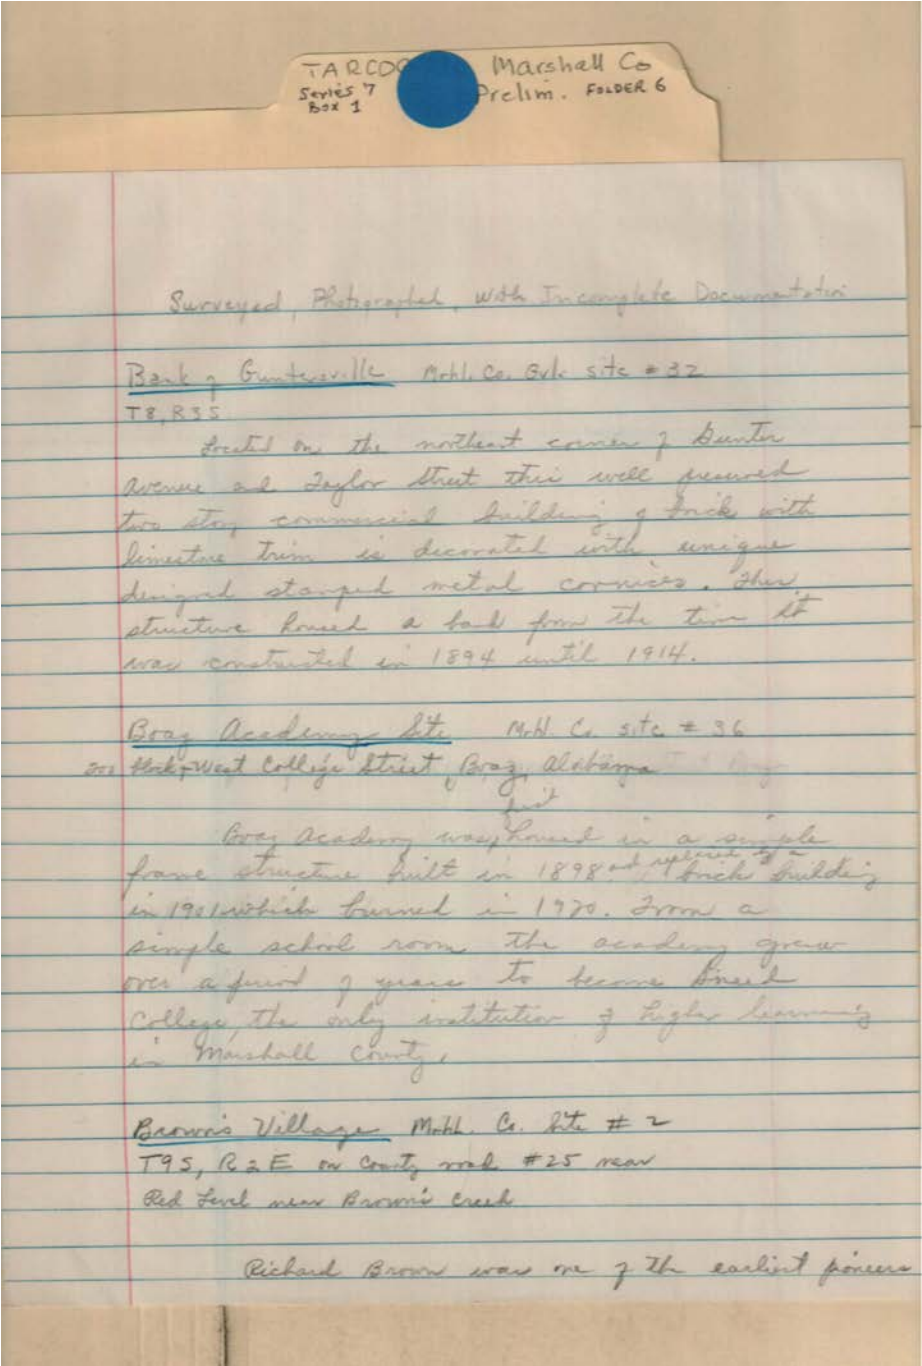 TARCOG Marshall Co
Series 7 Prelim. FOLDER 6
Box 1
Surveyed, Photographed, With Incomplete Documentation
Bank of Guntersville Mrhl. Co. Gvl. site #32
T8, R3S
Located on the northeast corner of Gunter
Avenue and Taylor Street this well preserved
two story commercial building of brick with
limestone trim is decorated with unique
designed stamped metal cornices. This
structure housed a bank from the time it
was constructed in 1894 until 1914.
Boaz Academy Site Mrhl. Co. site #36
200 Block of West College Street, Boaz, Alabama
first
Boaz Academy was housed in a simple
frame structure built in 1898 and replaced by a brick building
in 1901 which burned in 1920. From a
simple school room the academy grew
over a period of years to become Snead
College, the only institution of higher learning
in Marshall County.
Brown's Village Mrhl. Co. Site #2
T9S, R2E on County road #25 near
Red Level near Brown's Creek
Richard Brown was one of the earliest pioneers